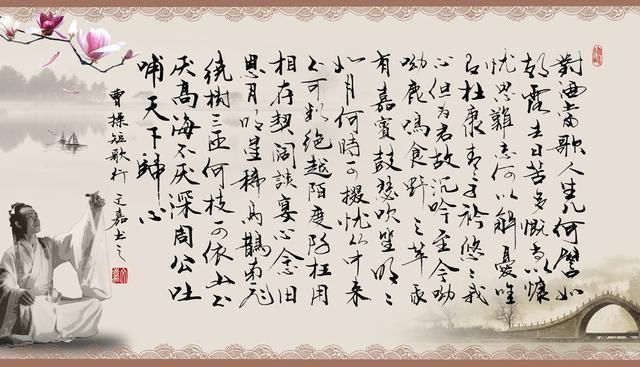 對酒當歌人生几何譬如
朝露去日苦多慨當以慷
忧思難忘何以解憂唯
有杜康青々子衿悠々我
心但为君故沉吟至今呦
呦鹿鳴食野之苹我
有嘉賓鼓瑟吹笙明々
如月何時可掇忧從中来
不可断绝越陌度阡枉用
相存契阔談宴心念旧
恩月明星稀烏鵲南飞
绕樹三匝何枝可依山不
厌高海不厌深周公吐
哺天下歸心
曹操短歌行 文嘉书之